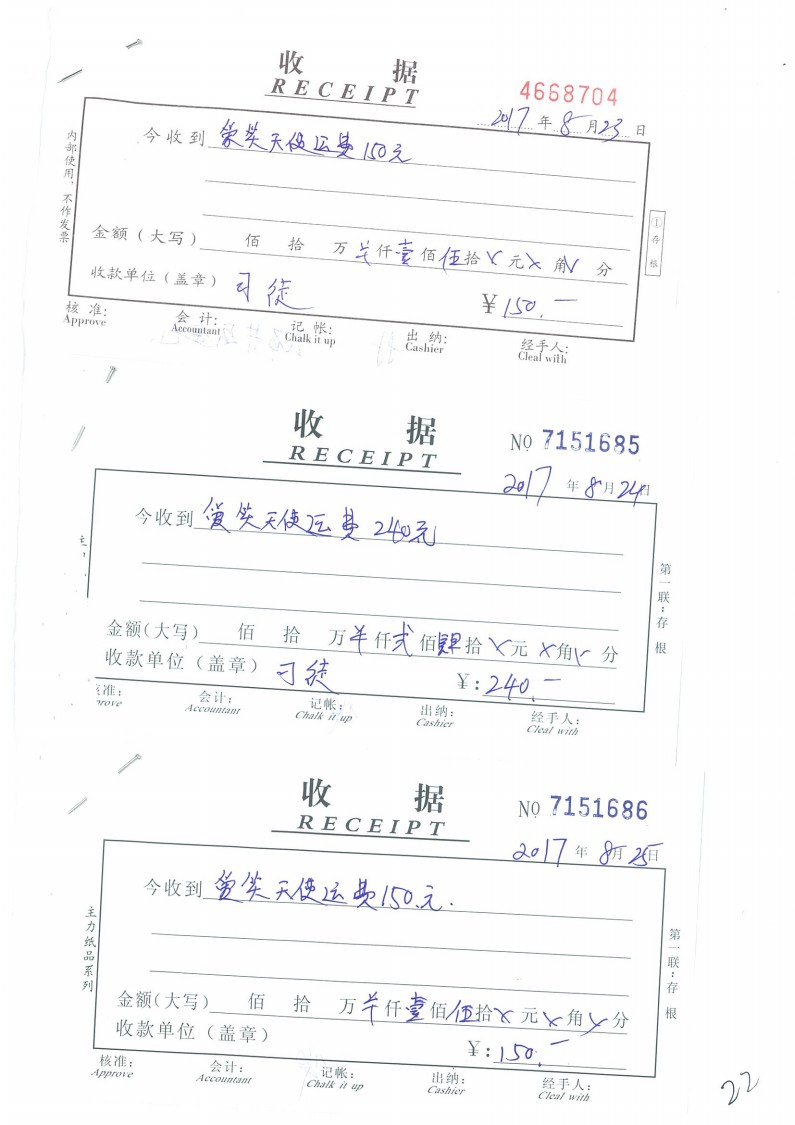 收 据
RECEIPT
4668704
2017 年 8 月 23 日
内部使用，不作发票
今收到 爱笑天使运费150元
①存根
金额（大写） 佰 拾 万 仟壹佰伍拾 元 角 分
收款单位（盖章） 司徒 ￥150.—
核 准: 会 计: 记 帐: 出 纳: 经手人:
Approve Accountant Chalk it up Cashier Cleal with
收 据
RECEIPT
NO 7151685
2017 年 8 月 24 日
今收到 爱笑天使运费 240元
第一联：存根
金额（大写） 佰 拾 万 仟贰佰肆拾 元 角 分
收款单位（盖章） 司徒 ￥:240.—
核准: 会计: 记帐: 出纳: 经手人:
prove Accountant Chalk it up Cashier Cleal with
收 据
RECEIPT
NO 7151686
2017 年 8月 25日
今收到 爱笑天使运费150元.
主力纸品系列
第一联：存根
金额（大写） 佰 拾 万 仟壹佰伍拾 元 角 分
收款单位（盖章） ￥:150.—
核准: 会计: 记帐: 出纳: 经手人:
Approve Accountant Chalk it up Cashier Cleal with
22